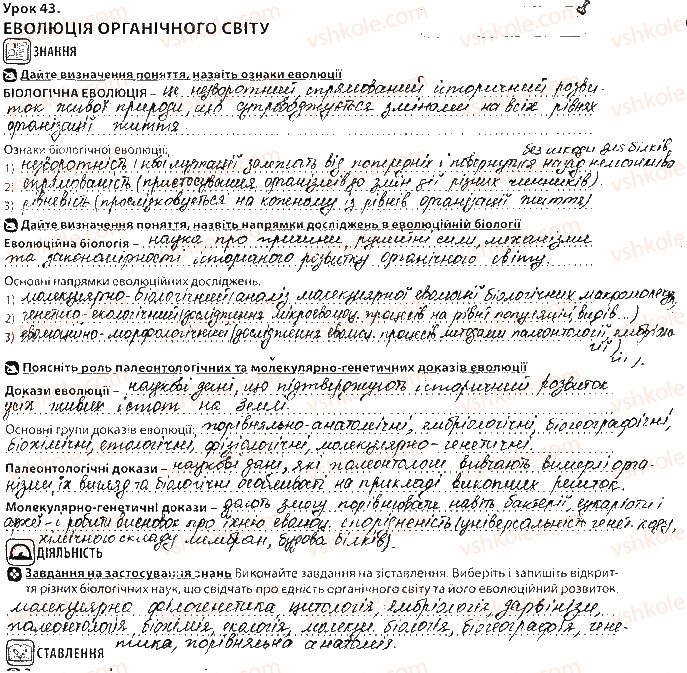 Урок 43.
ЕВОЛЮЦІЯ ОРГАНІЧНОГО СВІТУ
ЗНАННЯ
Дайте визначення поняття, назвіть ознаки еволюції
БІОЛОГІЧНА ЕВОЛЮЦІЯ – це незворотний, спрямований історичний розви-
ток живої природи, що супроводжується змінами на всіх рівнях
організації життя.
Ознаки біологічної еволюції:
1) незворотність (нові мутації залежать від попередніх і повернутися назад неможливо без шкоди для білків)
2) спрямованість (пристосування організмів до змін дії різних чинників)
3) рівневість (прослідковується на кожному із рівнів організації життя)
Дайте визначення поняття, назвіть напрямки досліджень в еволюційній біології
Еволюційна біологія – наука про причини, рушійні сили, механізми
та закономірності історичного розвитку органічного світу.
Основні напрямки еволюційних досліджень:
1) молекулярно-біологічний (аналіз молекулярної еволюції біологічних макромолекул)
2) генетико-екологічний (дослідження мікроеволюц. процесів на рівні популяцій, видів...)
3) еволюційно-морфологічний (дослідження еволюц. процесів методами палеонтології, ембріології).
Поясніть роль палеонтологічних та молекулярно-генетичних доказів еволюції
Докази еволюції – наукові дані, що підтверджують історичний розвиток
усіх живих істот на Землі.
Основні групи доказів еволюції: порівняльно-анатомічні, ембріологічні, біогеографічні,
біохімічні, етологічні, фізіологічні, молекулярно-генетичні.
Палеонтологічні докази – наукові дані, які палеонтологи вивчають вимерлі орга-
нізми, їх вигляд та біологічні особливості на прикладі викопних решток.
Молекулярно-генетичні докази – дають змогу порівнювати навіть бактерії, еукаріоти і
археї - і робити висновок про їхню еволюц. спорідненість (універсальність генет. коду,
хімічного складу мембран, будова білків).
ДІЯЛЬНІСТЬ
Завдання на застосування знань Виконайте завдання на зіставлення. Виберіть і запишіть відкрит-
тя різних біологічних наук, що свідчать про єдність органічного світу та його еволюційний розвиток.
молекулярна філогенетика, цитологія, ембріологія, дарвінізм,
палеонтологія, біохімія, екологія, молекул. біологія, біогеографія, гене-
тика, порівняльна анатомія.
СТАВЛЕННЯ